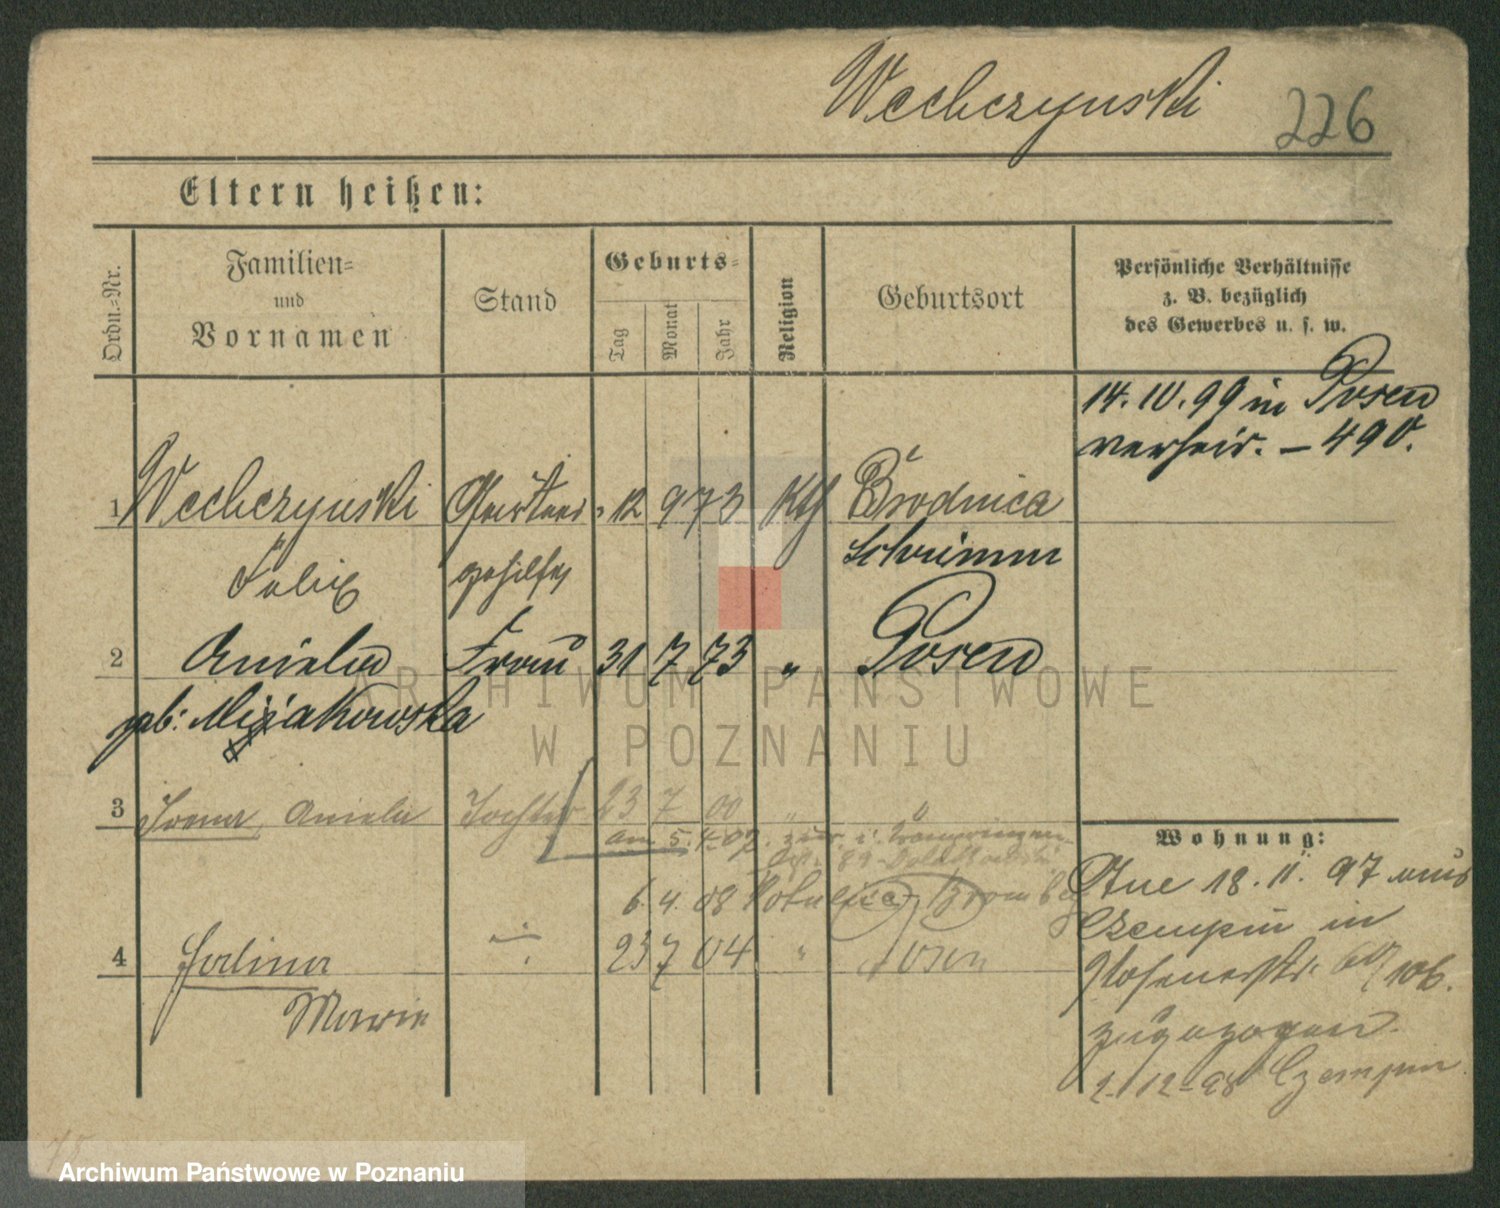 Wechczynski 226
Eltern heißen:
Ordn.=Nr. Familien= und Vornamen Stand Geburts= Tag Monat Jahr Religion Geburtsort Persönliche Verhältnisse z. B. bezüglich des Gewerbes u. s. w.
14. 10. 99 in Posen
verheir. – 490.
1 Wechczynski 12 9 73 Kth Brodnica
Felix gehilfe Schrimm
2 Aniela Frau 31 7 73 " Posen
geb: Mizakowska
3 Irena, Aniela Tochter 23 7 00 " "
am 5. 4. 07
6. 4. 08
4 Halina 23 7 04 " Posen
Marie
Wohnung:
18. 11. 97 aus
Czempin in
zugezogen.
2-12-98 Czempin
ARCHIWUM PAŃSTWOWE
W POZNANIU
Archiwum Państwowe w Poznaniu